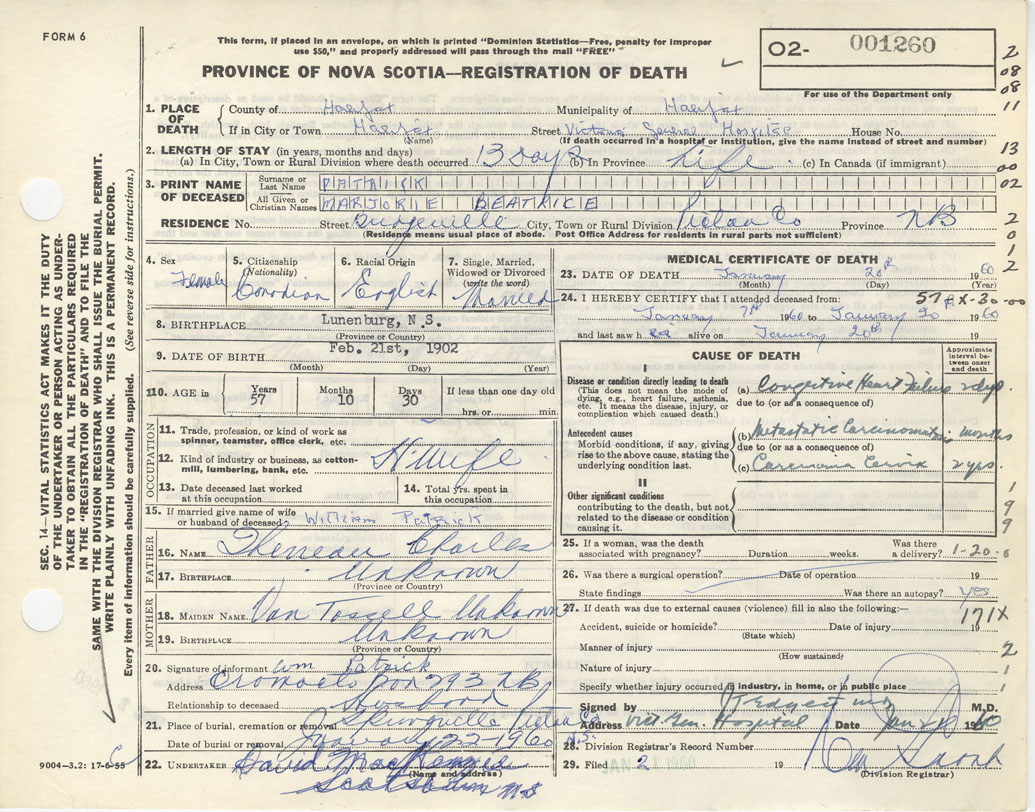 FORM 6
This form, if placed in an envelope, on which is printed "Dominion Statistics—Free, penalty for improper
use $50," and properly addressed will pass through the mail "FREE"
PROVINCE OF NOVA SCOTIA—REGISTRATION OF DEATH
O2- 001260
For use of the Department only
2
08
08
11
13
00
02
2
0
1
2
SEC. 14—VITAL STATISTICS ACT MAKES IT THE DUTY
OF THE UNDERTAKER OR PERSON ACTING AS UNDER-
TAKER TO OBTAIN ALL THE PARTICULARS REQUIRED
IN THE "REGISTRATION OF DEATH" AND TO FILE THE
SAME WITH THE DIVISION REGISTRAR WHO SHALL ISSUE THE BURIAL PERMIT.
WRITE PLAINLY WITH UNFADING INK. THIS IS A PERMANENT RECORD.
Every item of information should be carefully supplied. (See reverse side for instructions.)
1. PLACE OF DEATH
County of Halifax Municipality of Halifax
If in City or Town Halifax Street Victoria General Hospital House No.
(Name) (If death occurred in a hospital or institution, give the name instead of street and number)
2. LENGTH OF STAY (in years, months and days)
(a) In City, Town or Rural Division where death occurred 13 days (b) In Province Life (c) In Canada (if immigrant)
3. PRINT NAME OF DECEASED
Surname or Last Name PATRICK
All Given or Christian Names MARJORIE BEATRICE
RESIDENCE No. Street City, Town or Rural Division Pictou Co Province NB
(Residence means usual place of abode. Post Office Address for residents in rural parts not sufficient)
4. Sex Female
5. Citizenship (Nationality) Canadian
6. Racial Origin English
7. Single, Married, Widowed or Divorced (write the word) Married
8. BIRTHPLACE Lunenburg, N.S.
(Province or Country)
9. DATE OF BIRTH Feb. 21st, 1902
(Month) (Day) (Year)
10. AGE in Years 57 Months 10 Days 30 If less than one day old hrs. or min.
OCCUPATION
11. Trade, profession, or kind of work as
spinner, teamster, office clerk, etc.
12. Kind of industry or business, as cotton-
mill, lumbering, bank, etc. H.Wife
13. Date deceased last worked at this occupation
14. Total yrs. spent in this occupation
15. If married give name of wife
or husband of deceased William Patrick
FATHER
16. NAME Charles
17. BIRTHPLACE Unknown
(Province or Country)
MOTHER
18. MAIDEN NAME Van Tassell Unknown
19. BIRTHPLACE Unknown
(Province or Country)
20. Signature of informant Wm Patrick
Address Oromocto Box 293 NB
Relationship to deceased Husband
21. Place of burial, cremation or removal Pictou Co.
N.S.
Date of burial or removal January 22-1960
22. UNDERTAKER David MacKenzie
(Name and address)
Scotsburn N.S
9004-3.2: 17-6-55
MEDICAL CERTIFICATE OF DEATH
23. DATE OF DEATH January 20th 1960
(Month) (Day) (Year)
57 X-30-00
24. I HEREBY CERTIFY that I attended deceased from:
January 7th 1960 to January 20 1960
and last saw her alive on January 20th
CAUSE OF DEATH
Approximate interval between onset and death
I
Disease or condition directly leading to death
(This does not mean the mode of
dying, e.g., heart failure, asthenia,
etc. It means the disease, injury, or
complication which caused death.)
(a) Congestive Heart failure 2 days.
due to (or as a consequence of)
Antecedent causes
Morbid conditions, if any, giving
rise to the above cause, stating the
underlying condition last.
(b) Metastatic Carcinomatosis months
due to (or as a consequence of)
(c) Carcinoma Cervix 2 yrs.
II
Other significant conditions
contributing to the death, but not
related to the disease or condition
causing it.
1
9
9
25. If a woman, was the death
associated with pregnancy? Duration weeks. Was there a delivery? 1-20-0
26. Was there a surgical operation? Date of operation 19
State findings Was there an autopsy? yes
27. If death was due to external causes (violence) fill in also the following:—
171X
Accident, suicide or homicide? Date of injury 19
(State which)
Manner of injury
(How sustained)
2
Nature of injury
1
Specify whether injury occurred in industry, in home, or in public place
1
Signed by M.D.
Address Vict. Gen. Hospital Date Jan 1960
28. Division Registrar's Record Number
29. Filed 2 JAN 1960 19
(Division Registrar)